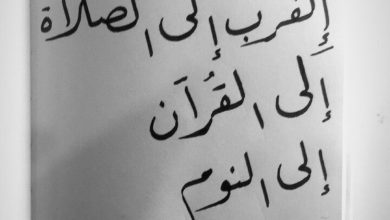 إهرب إلى الصلاة
إلى القُرآن
إلى النوم